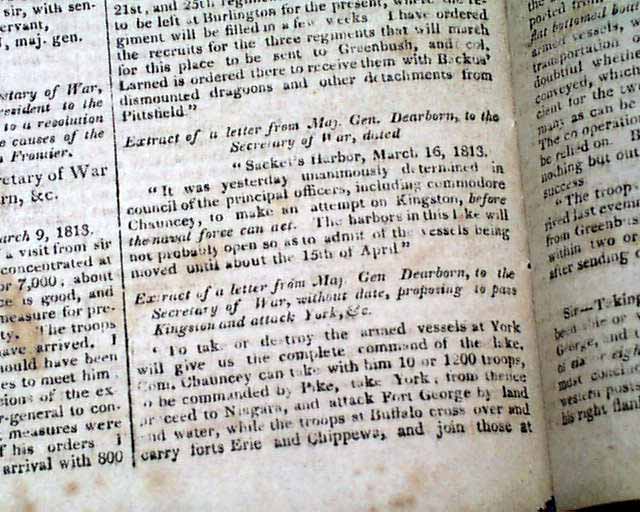 sir, with sen-
ervant,
maj. gen.
etary of War,
resident to the
to a resolution
e causes of the
n Frontier.
retary of War
rn, &c.
arch 9, 1813.
a visit from sir
concentrated at
or 7,000, about
ce is good, and
measure for pre-
ty. The troops
have arrived. I
hould have been
es to meet him
sions of the ex
r-general to con-
measures were
f his orders I
arrival with 800
21st, and 25th
to be left at Burlington for the present, where the re-
giment will be filled in a few weeks I have ordered
the recruits for the three regiments that will march
for this place to be sent to Greenbush, and col.
Larned is ordered there to receive them with Backus'
dismounted dragoons and other detachments from
Pittsfield"
Extract of a letter from Maj. Gen. Dearborn, to the
Secretary of War, dated
"Sacket's Harbor, March 16, 1813.
"It was yesterday unanimously determined in
council of the principal officers, including commodore
Chauncey, to make an attempt on Kingston, before
the naval force can act. The harbors in this lake will
not probably open so as to admit of the vessels being
moved until about the 15th of April"
Extract of a letter from Maj. Gen Dearborn, to the
Secretary of War, without date, proposing to pass
Kingston and attack York, &c.
"To take or destroy the armed vessels at York
will give us the complete command of the lake.
Com. Chauncey can take with him 10 or 1200 troops,
o be commanded by Pike, take York, from thence
proceed to Niagara, and attack Fort George by land
and water, while the troops at Buffalo cross over and
carry forts Erie and Chippewa, and join those at
ported from
flat bottomed boa
armed vessels,
transportation o
doubtful whethe
conveyed, which
cient for the tw
many as can be
The co operation
be relied on.
nothing but out
success
"The troop
rived last evenin
from Greenb
within two or
after sending
Sir—Takin
been
George, and
of six or eigh
most conci
western pos
his right flank